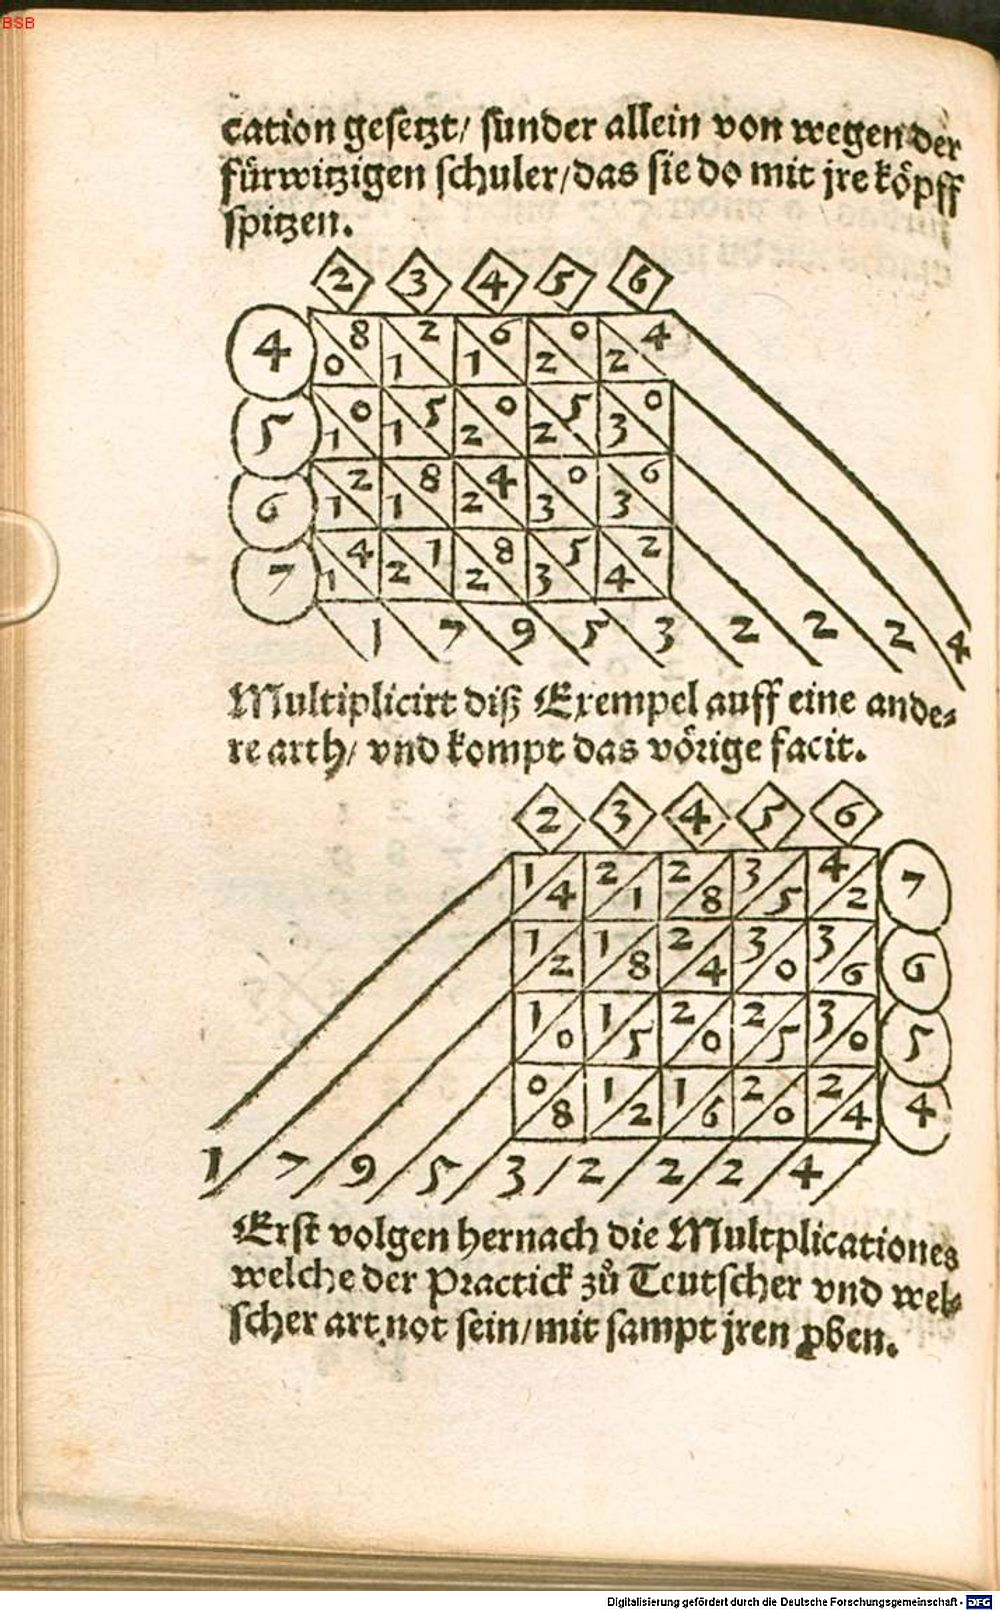 BSB
cation gesetzt/ sunder allein von wegen der
fürwitzigen schuler/das sie do mit jre köpff
spitzen.
2 3 4 5 6
4 8 0 2 1 6 1 0 2 4 2
5 0 1 5 1 0 2 5 2 0 3
6 2 1 8 1 4 2 0 3 6 3
7 4 1 1 2 8 2 5 3 2 4
1 7 9 5 3 2 2 2 4
Multiplicirt diß Exempel auff eine ande=
re arth/ vnd kompt das vörige facit.
2 3 4 5 6
1 4 2 1 2 8 3 5 4 2 7
1 2 1 8 2 4 3 0 3 6 6
1 0 1 5 2 0 2 5 3 0 5
0 8 1 2 1 6 2 0 2 4 4
1 7 9 5 3 2 2 2 4
Erst volgen hernach die Multplicationes
welche der Practick zů Teutscher vnd wel=
scher art not sein/mit sampt jren ꝓben.
Digitalisierung gefördert durch die Deutsche Forschungsgemeinschaft - DFG